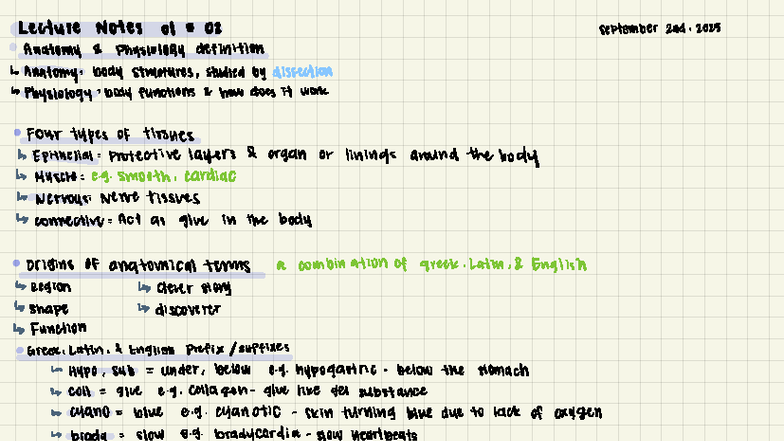 Lecture Notes 01 & 02
September 2nd, 2025
Anatomy & Physiology definition
↳ Anatomy: body structures, studied by disection
↳ Physiology: body functions & how does it work
Four types of tissues
↳ Epithelial: Protective layers & organ or linings around the body
↳ Muscle: e.g. smooth, cardiac
↳ Nervous: Nerve tissues
↳ connective: Act as glue in the body
Origins of anatomical terms a combination of greek, Latin, & English
↳ Region ↳ clever story
↳ shape ↳ discoverer
↳ Function
Greek, Latin, & English Prefix/suffixes
↳ Hypo, sub = under, below e.g. hypogastric - below the stomach
↳ coll = glue e.g. collagen - glue like gel substance
↳ cyano = blue e.g. cyanotic - skin turning blue due to lack of oxygen
↳ brady = slow e.g. bradycardia - slow heartbeats